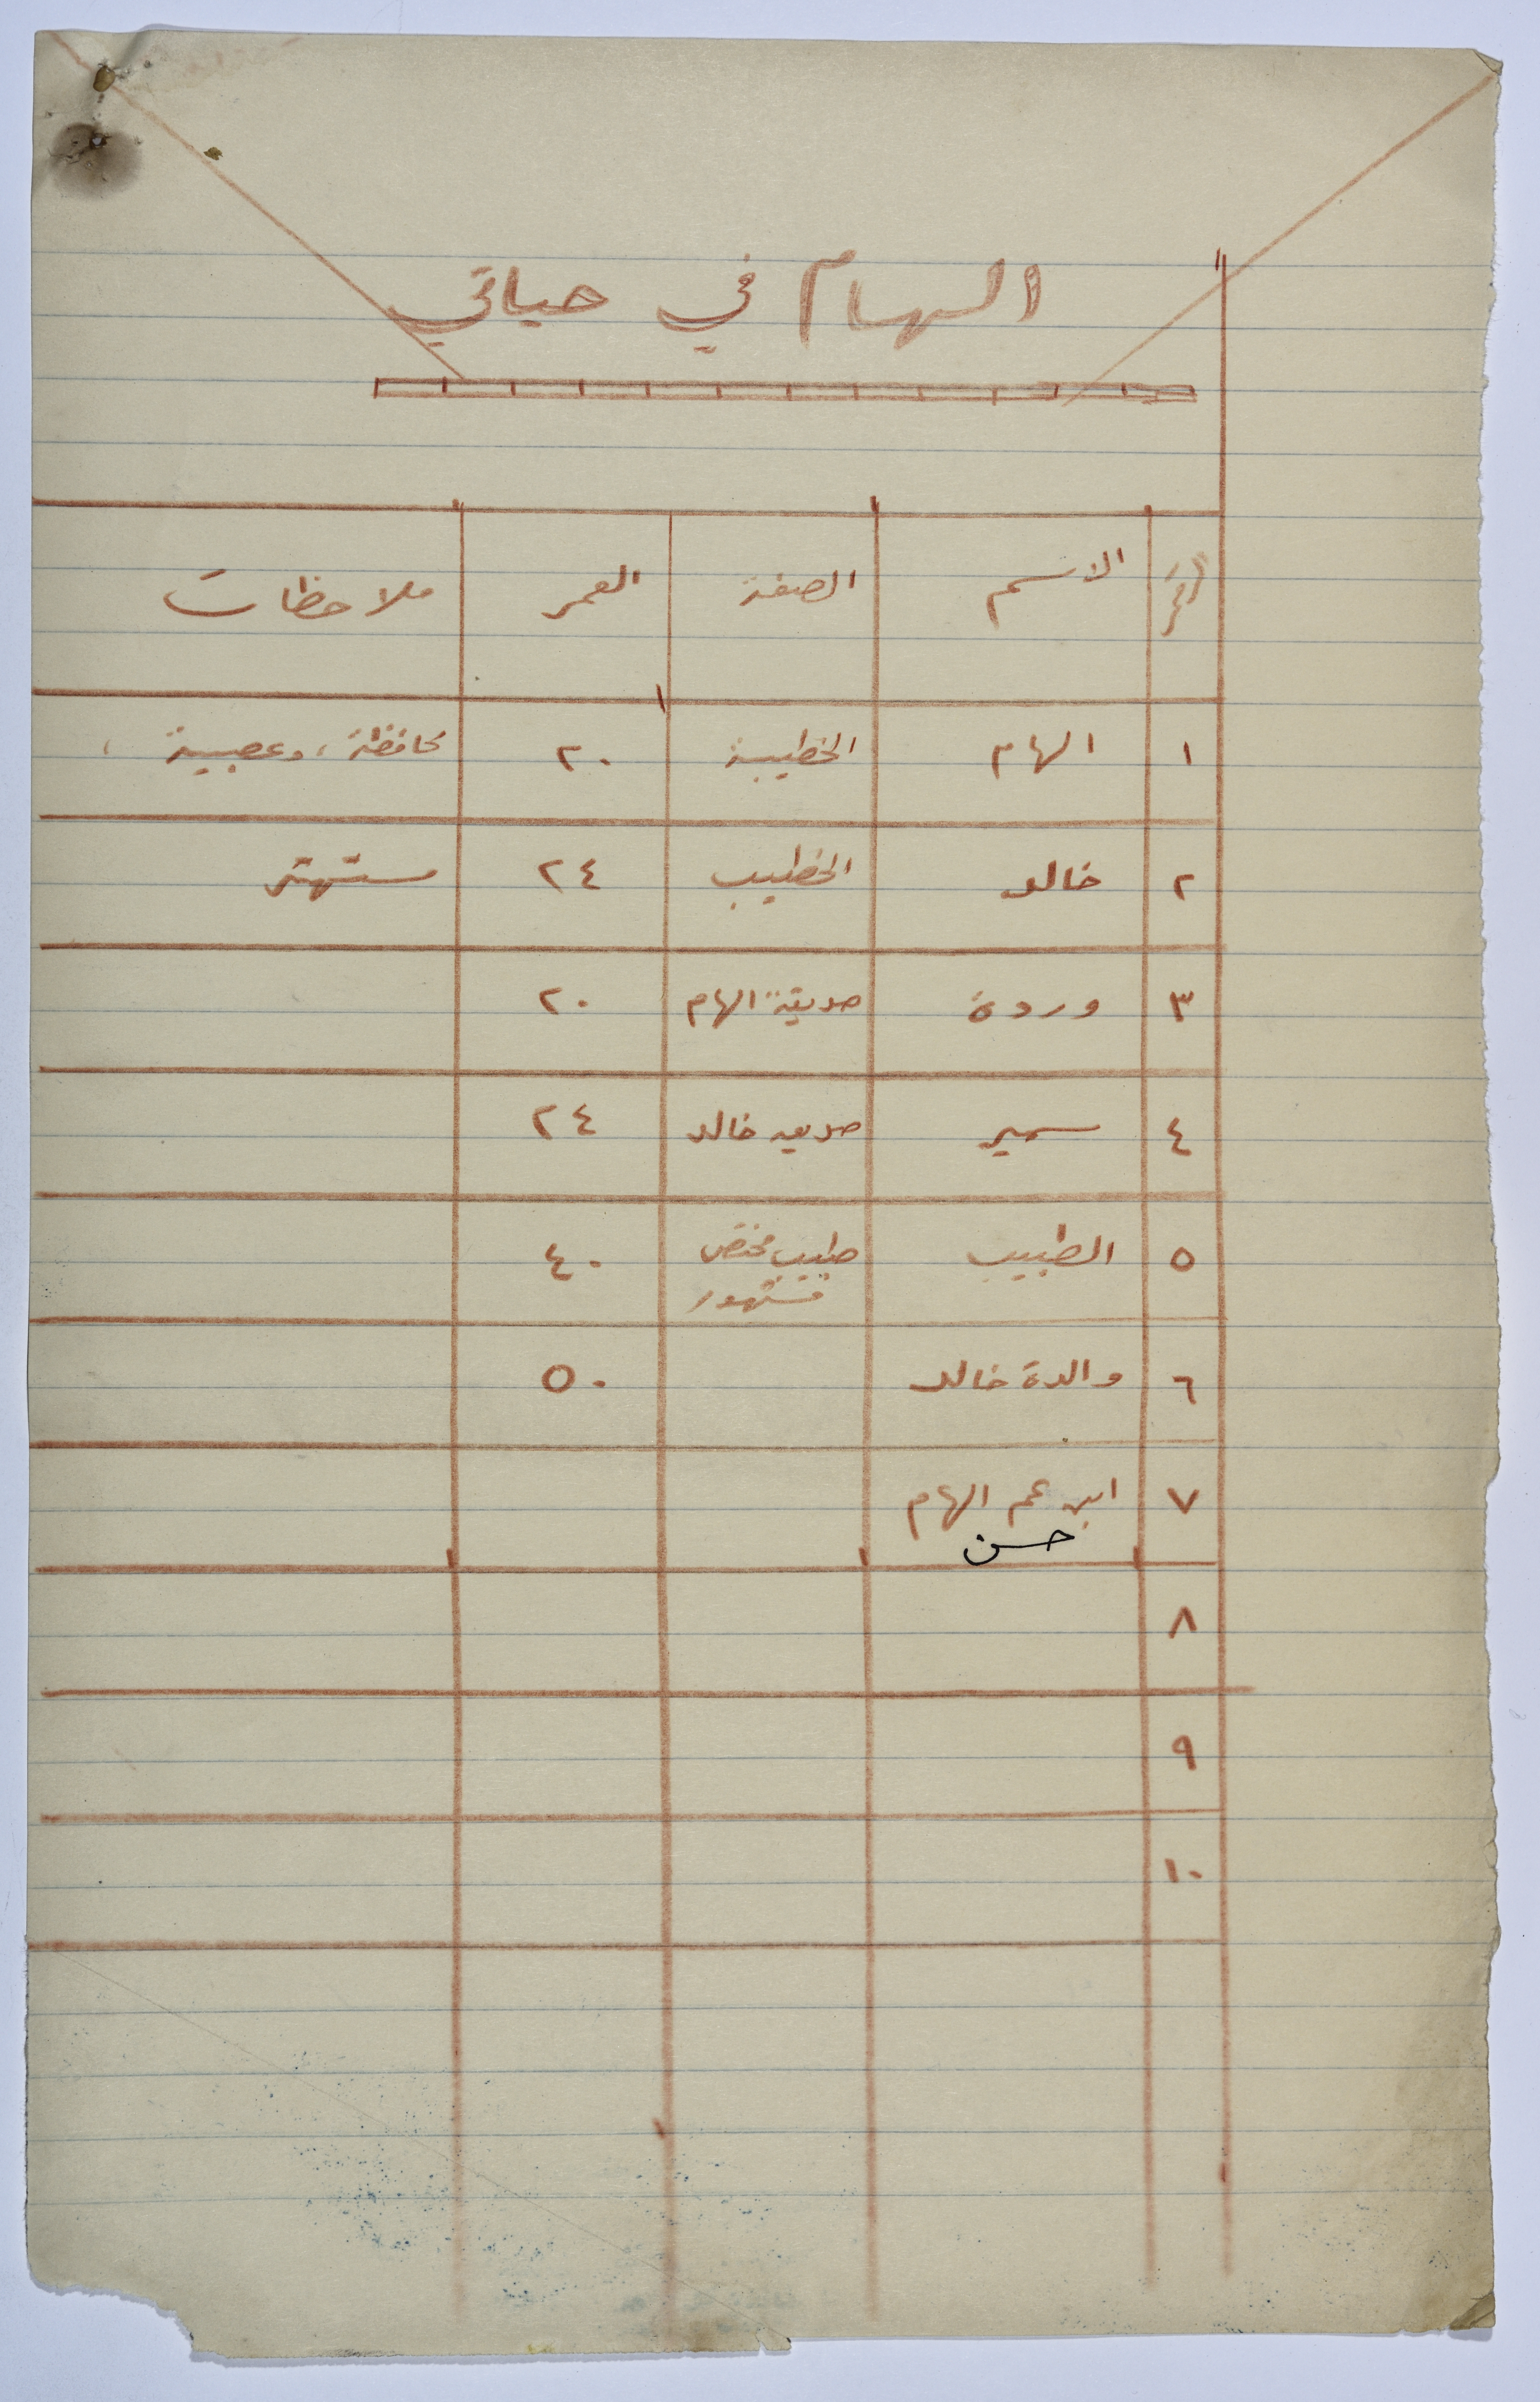 الهام في حياتي
رقم الاسم الصفة العمر ملاحظات
١ الهام الخطيبة ٢٠ محافظة، وعصبية،
٢ خالد الخطيب ٢٤ مستهتر
٣ وردة صديقة الهام ٢٠
٤ سمير صديق خالد ٢٤
٥ الطبيب طبيب مختص ٤٠
مشهور
٦ والدة خالد ٥٠
٧ ابن عم الهام
حسن
٨
٩
١٠